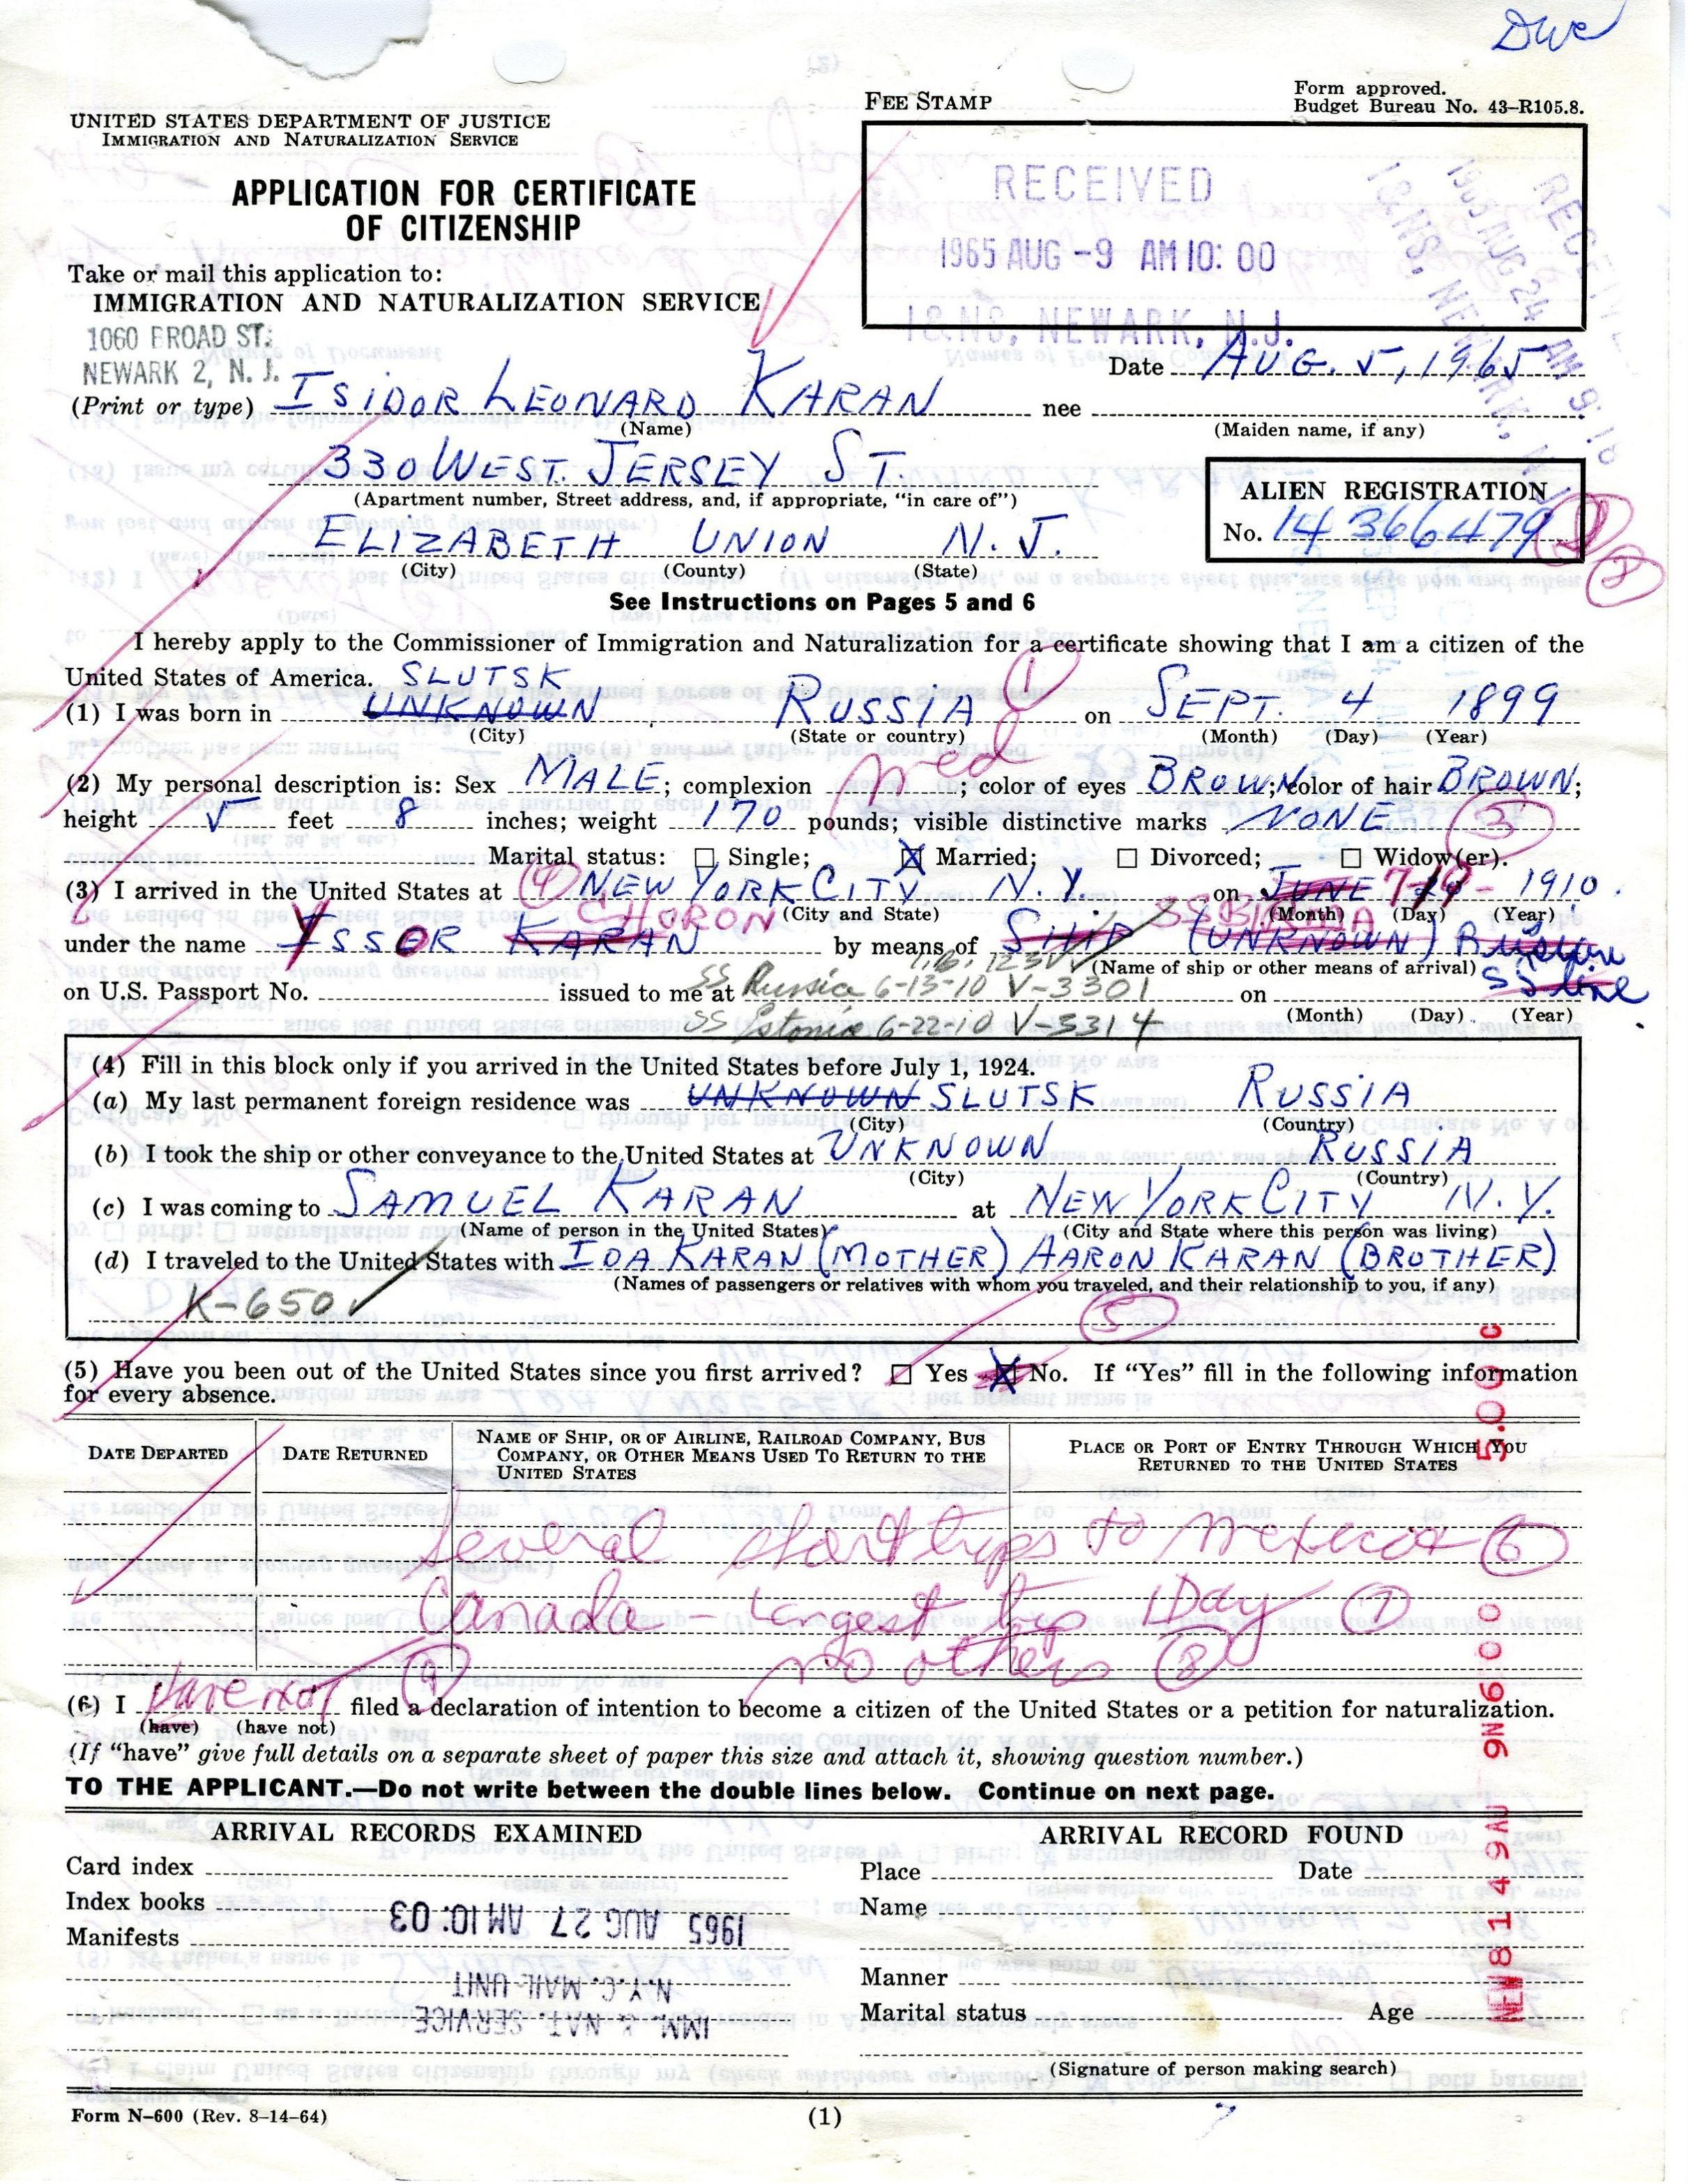 Dwe
UNITED STATES DEPARTMENT OF JUSTICE
IMMIGRATION AND NATURALIZATION SERVICE
FEE STAMP
Form approved.
Budget Bureau No. 43–R105.8.
APPLICATION FOR CERTIFICATE
OF CITIZENSHIP
RECEIVED
1965 AUG -9 AM 10: 00
I & NS, NEWARK, N.J.
RECEIVED
1965 AUG 24 AM 9:18
I & NS, NEWARK, N.J.
Take or mail this application to:
IMMIGRATION AND NATURALIZATION SERVICE
1060 BROAD ST.
NEWARK 2, N. J.
Date AUG. 5, 1965
(Print or type) ISIDOR LEONARD KARAN nee
(Name) (Maiden name, if any)
330 WEST. JERSEY ST.
(Apartment number, Street address, and, if appropriate, "in care of")
ALIEN REGISTRATION
No. 14 366479
ELIZABETH UNION N. J.
(City) (County) (State)
See Instructions on Pages 5 and 6
I hereby apply to the Commissioner of Immigration and Naturalization for a certificate showing that I am a citizen of the
United States of America. SLUTSK 1
(1) I was born in UNKNOWN RUSSIA on SEPT. 4 1899
(City) (State or country) (Month) (Day) (Year)
(2) My personal description is: Sex MALE; complexion med; color of eyes BROWN; color of hair BROWN;
height 5 feet 8 inches; weight 170 pounds; visible distinctive marks NONE 3
Marital status: ☐ Single; ☒ Married; ☐ Divorced; ☐ Widow(er).
(3) I arrived in the United States at 4 NEW YORK CITY N.Y. on JUNE 7-19- 1910.
CHORON (City and State) (Month) (Day) (Year)
under the name YSSER KARAN by means of SHIP (UNKNOWN) Russian
(Name of ship or other means of arrival) SS line
on U.S. Passport No. issued to me at SS Russia 6-13-10 V-3301 on
SS Estonia 6-22-10 V-3314 (Month) (Day) (Year)
(4) Fill in this block only if you arrived in the United States before July 1, 1924.
(a) My last permanent foreign residence was UNKNOWN SLUTSK RUSSIA
(City) (Country)
(b) I took the ship or other conveyance to the United States at UNKNOWN RUSSIA
(City) (Country)
(c) I was coming to SAMUEL KARAN at NEW YORK CITY N.Y.
(Name of person in the United States) (City and State where this person was living)
(d) I traveled to the United States with IDA KARAN (MOTHER) AARON KARAN (BROTHER)
(Names of passengers or relatives with whom you traveled, and their relationship to you, if any)
K-650 5
(5) Have you been out of the United States since you first arrived? ☐ Yes ☒ No. If "Yes" fill in the following information
for every absence.
DATE DEPARTED
DATE RETURNED
NAME OF SHIP, OR OF AIRLINE, RAILROAD COMPANY, BUS
COMPANY, OR OTHER MEANS USED TO RETURN TO THE
UNITED STATES
PLACE OR PORT OF ENTRY THROUGH WHICH YOU
RETURNED TO THE UNITED STATES
Several short trips to Mexico + 6
Canada – Longest trip 1 Day 7
no others 8
(6) I have not 9 filed a declaration of intention to become a citizen of the United States or a petition for naturalization.
(have) (have not)
(If "have" give full details on a separate sheet of paper this size and attach it, showing question number.)
TO THE APPLICANT.—Do not write between the double lines below. Continue on next page.
ARRIVAL RECORDS EXAMINED
Card index
Index books
Manifests
1965 AUG 27 AM 10:03
N.Y.C. MAIL UNIT
IMM. & NAT. SERVICE
ARRIVAL RECORD FOUND
Place Date
Name
Manner
Marital status Age
(Signature of person making search)
NEW 81 4 9AU 9N600 5.00 C
Form N–600 (Rev. 8–14–64)
(1)